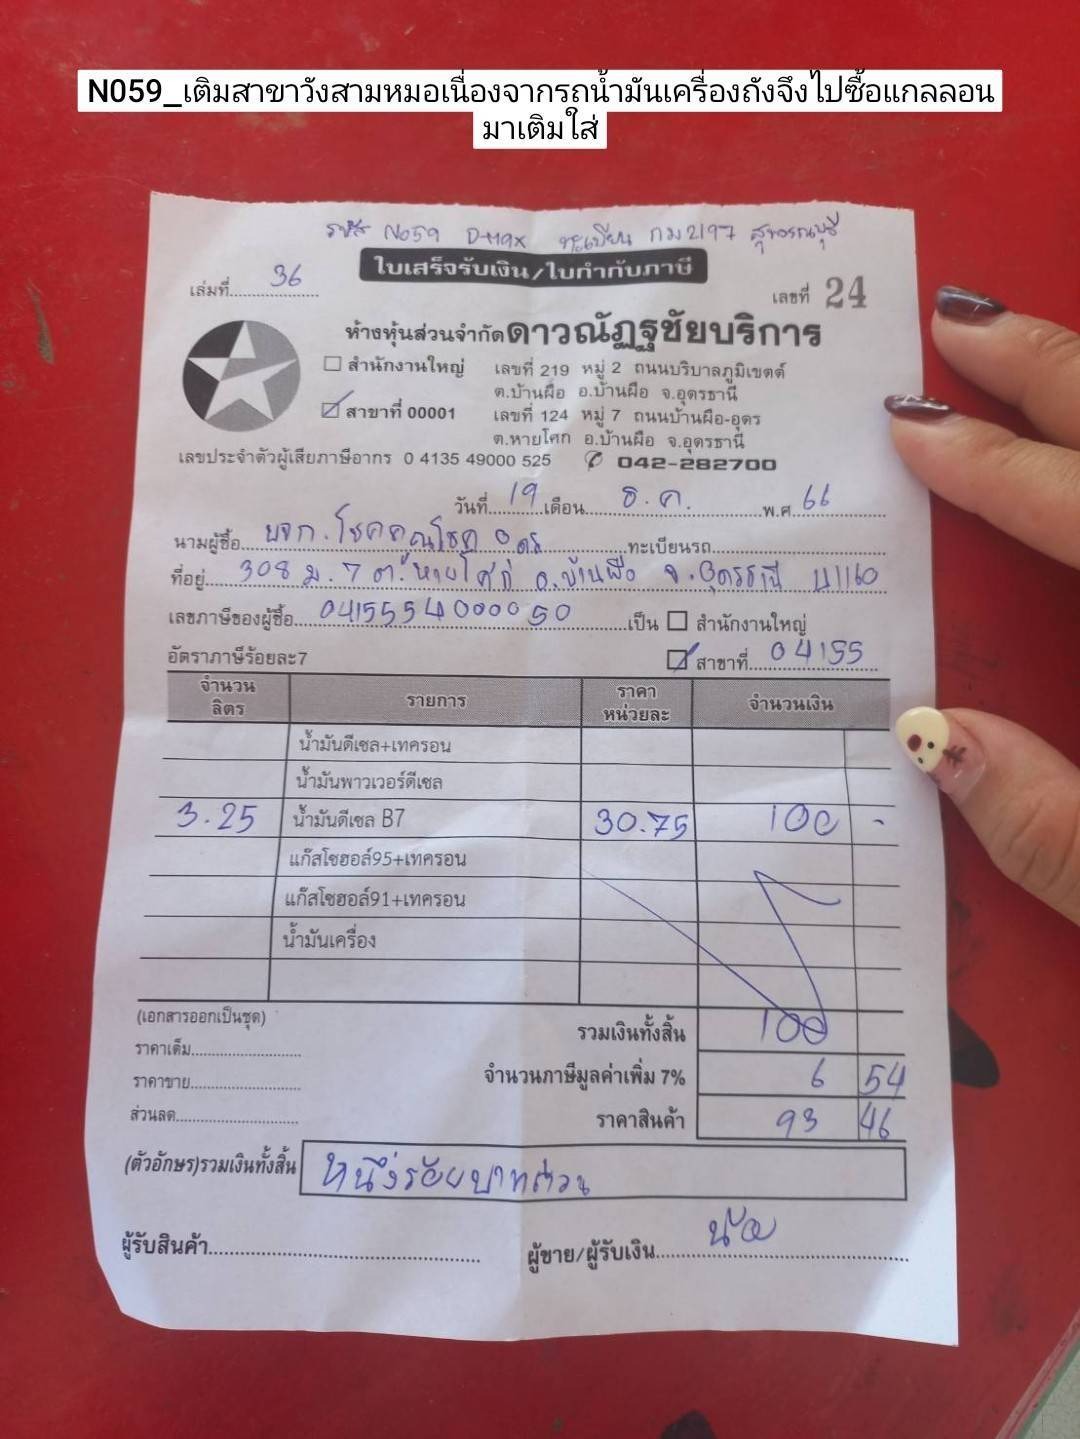 N059_เติมสาขาวังสามหมอเนื่องจากรถน้ำมันเครื่องถังจึงไปซื้อแกลลอน
มาเติมใส่
รหัส N059 D-max ทะเบียน กม2197 สุพรรณบุรี
ใบเสร็จรับเงิน/ใบกำกับภาษี
เล่มที่ 36
เลขที่ 24
ห้างหุ้นส่วนจำกัดดาวณัฏฐชัยบริการ
สำนักงานใหญ่ เลขที่ 219 หมู่ 2 ถนนบริบาลภูมิเขตต์
ต.บ้านผือ อ.บ้านผือ จ.อุดรธานี
สาขาที่ 00001 เลขที่ 124 หมู่ 7 ถนนบ้านผือ-อุดร
ต.หายโศก อ.บ้านผือ จ.อุดรธานี
เลขประจำตัวผู้เสียภาษีอากร 0 4135 49000 525 042-282700
วันที่ 19 เดือน ธ.ค. พ.ศ. 66
นามผู้ซื้อ บจก. โชคคูณโชค อุดร ทะเบียนรถ
ที่อยู่ 308 ม. 7 ต. หายโศก อ.บ้านผือ จ.อุดรธานี 41160
เลขภาษีของผู้ซื้อ 0415554000050 เป็น สำนักงานใหญ่
อัตราภาษีร้อยละ7 สาขาที่ 04155
จำนวนลิตร รายการ ราคาหน่วยละ จำนวนเงิน
น้ำมันดีเซล+เทครอน
น้ำมันพาวเวอร์ดีเซล
3.25 น้ำมันดีเซล B7 30.75 100 -
แก๊สโซฮอล์95+เทครอน
แก๊สโซฮอล์91+เทครอน
น้ำมันเครื่อง
(เอกสารออกเป็นชุด) รวมเงินทั้งสิ้น 100
ราคาเต็ม
ราคาขาย จำนวนภาษีมูลค่าเพิ่ม 7% 6 54
ส่วนลด ราคาสินค้า 93 46
(ตัวอักษร)รวมเงินทั้งสิ้น หนึ่งร้อยบาทถ้วน
ผู้รับสินค้า ผู้ขาย/ผู้รับเงิน